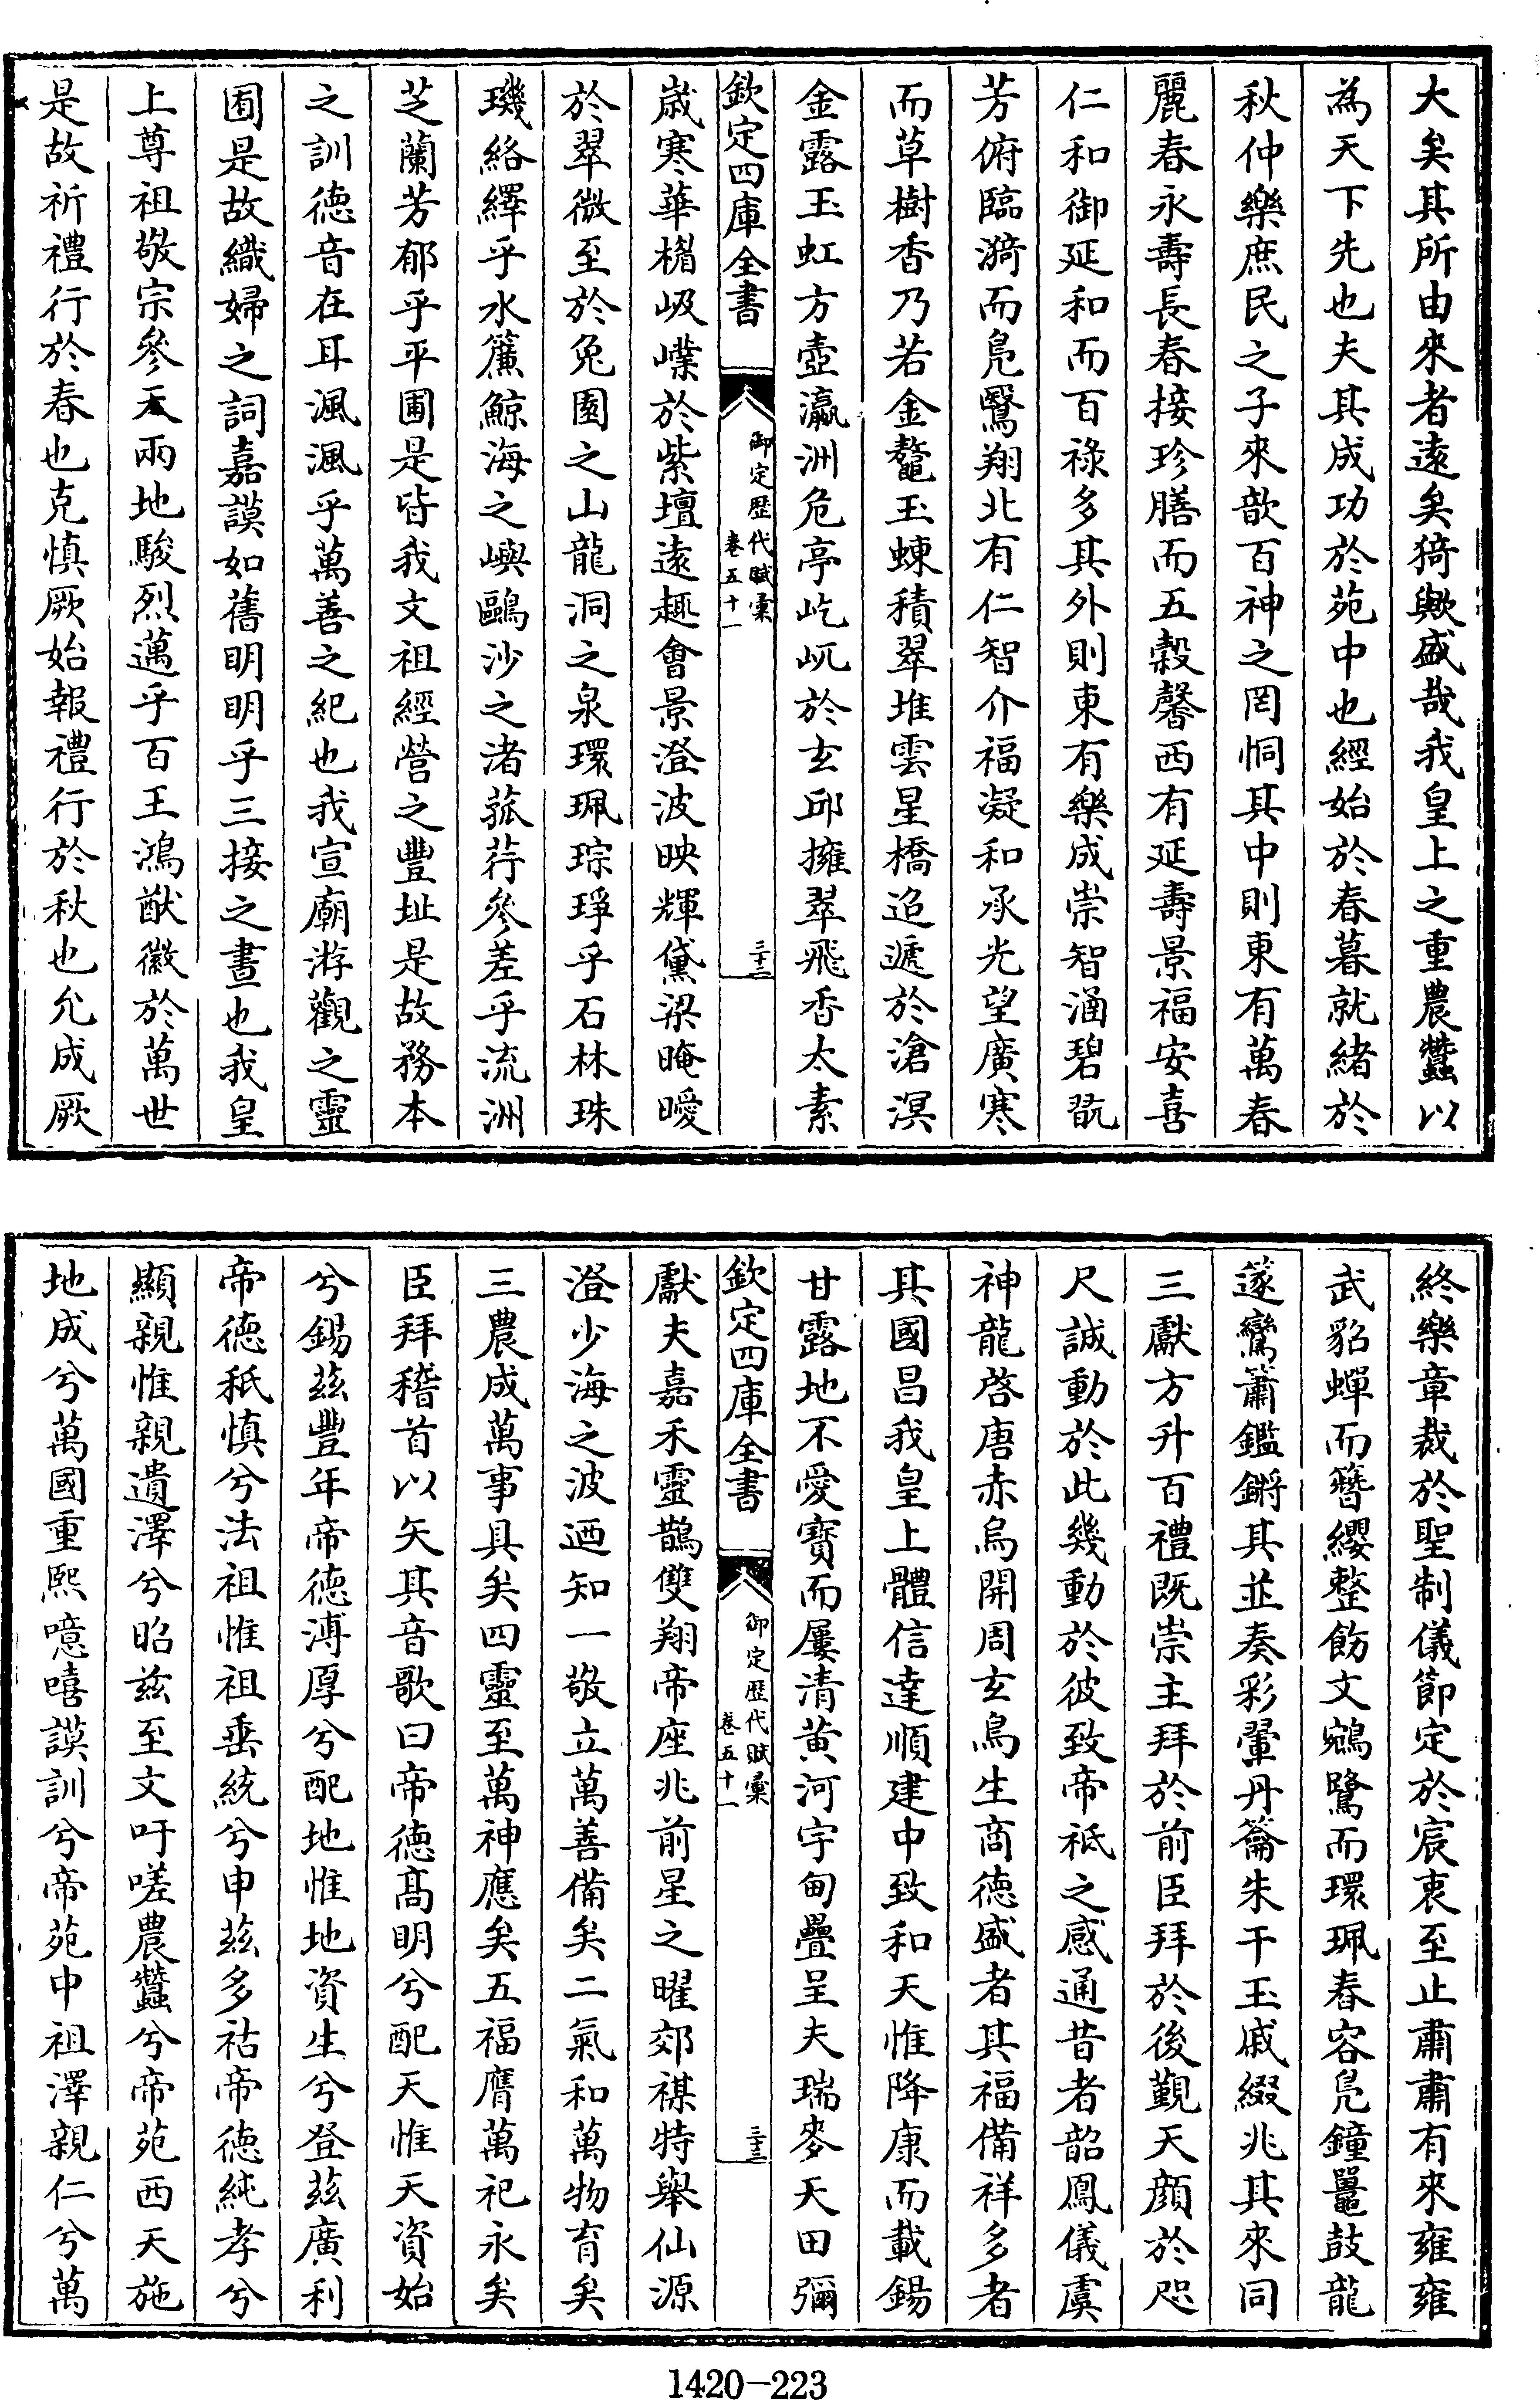 大矣其所由來者遠矣猗歟盛哉我皇上之重農蠶以
為天下先也夫其成功於苑中也經始於春暮就緒於
秋仲樂庶民之子來歆百神之罔恫其中則東有萬春
麗春永壽長春接珍膳而五榖馨西有延壽景福安喜
仁和御延和而百祿多其外則東有樂成崇智涵碧翫
芳俯臨漪而鳧鷖翔北有仁智介福凝和承光望廣寒
而草樹香乃若金鼇玉蝀積翠堆雲星橋迢遞於滄溟
金露玉虹方壺瀛洲危亭屹屼於玄邱擁翠飛香太素
欽定四庫全書
御定歴代賦彙
卷五十一
三十二
歳寒華榴岋嶫於紫壇遠趣會景澄波映輝黛梁晻曖
於翠微至於兔園之山龍洞之泉環珮琮琤乎石林珠
璣絡繹乎水簾鯨海之嶼鷗沙之渚菰荇參差乎流洲
芝蘭芳郁乎平圃是皆我文祖經營之豐址是故務本
之訓徳音在耳渢渢乎萬善之紀也我宣廟游觀之靈
囿是故織婦之詞嘉謨如舊明明乎三接之晝也我皇
上尊祖敬宗參天兩地駿烈邁乎百王鴻猷徽於萬世
是故祈禮行於春也克慎厥始報禮行於秋也允成厥
終樂章裁於聖制儀節定於宸衷至止肅肅有來雍雍
武貂蟬而簪纓整飭文鵷鷺而環珮舂容鳧鐘鼉鼓龍
篴鸞簫鑑鏘其並奏彩翬丹籥朱干玉戚綴兆其來同
三獻方升百禮既崇主拜於前臣拜於後覲天顔於咫
尺誠動於此幾動於彼致帝祗之感通昔者韶鳳儀虞
神龍啓唐赤烏開周玄鳥生商徳盛者其福備祥多者
其國昌我皇上體信達順建中致和天惟降康而載錫
甘露地不愛寶而屢清黄河宇甸疊呈夫瑞麥天田彌
欽定四庫全書
御定歴代賦彙
卷五十一
三十三
獻夫嘉禾靈鵲雙翔帝座兆前星之曜郊禖特舉仙源
澄少海之波迺知一敬立萬善備矣二氣和萬物育矣
三農成萬事具矣四靈至萬神應矣五福膺萬祀永矣
臣拜稽首以矢其音歌曰帝徳髙明兮配天惟天資始
兮錫兹豐年帝徳溥厚兮配地惟地資生兮登兹廣利
帝徳秖慎兮法祖惟祖垂統兮申兹多祜帝徳純孝兮
顯親惟親遺澤兮昭兹至文吁嗟農蠶兮帝苑西天施
地成兮萬國重熙噫嘻謨訓兮帝苑中祖澤親仁兮萬
1420-223